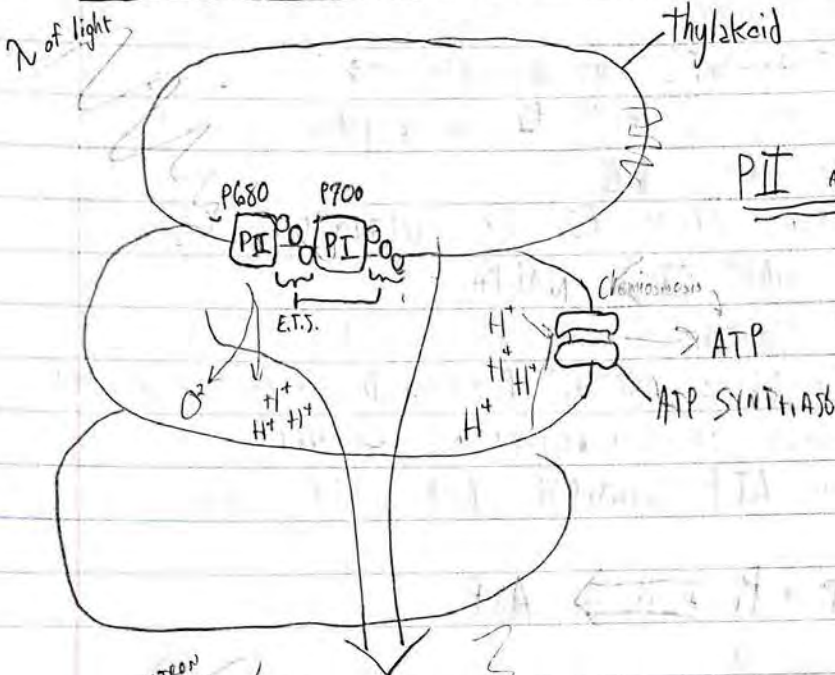 λ of light
thylakoid
P680
P700
PII
PI
PII
E.T.S.
Chemiosmosis
H+
H+
H+
H+
ATP
ATP SYNTHASE
O2
H+
H+ H+